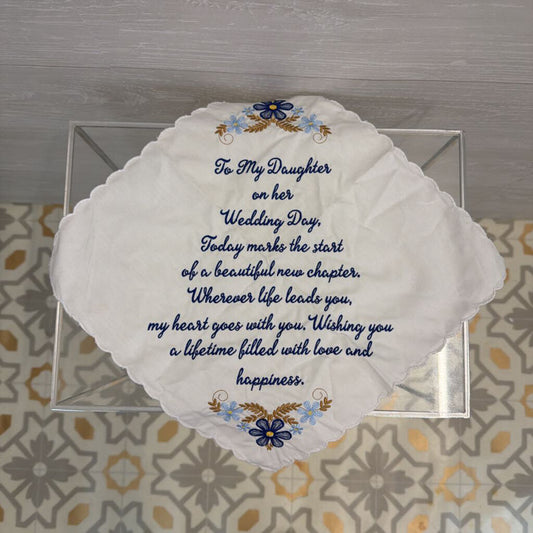 To My Daughter
on her
Wedding Day,
Today marks the start
of a beautiful new chapter.
Wherever life leads you,
my heart goes with you. Wishing you
a lifetime filled with love and
happiness.